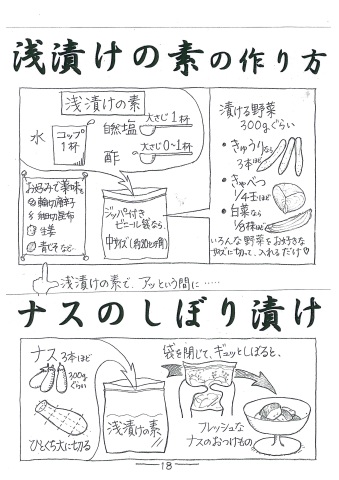 浅漬けの素の作り方
浅漬けの素
水
コップ
1杯
自然塩
大さじ1杯
酢
大さじ0~1杯
お好みで薬味
輪切唐辛子
細切昆布
生姜
青じそなど…
ジッパー付き
ビニール袋なら、
中サイズ
漬ける野菜
300gぐらい
・きゅうりなら
3本ほど
・きゃべつ
1/4玉ほど
・白菜なら
1/8株ほど
いろんな野菜をお好きな
サイズに切って、入れるだけ♡
浅漬けの素で、アッという間に……
ナスのしぼり漬け
ナス3本ほど
300g
ぐらい
ひとくち大に切る
浅漬けの素
袋を閉じて、ギュッとしぼると、
フレッシュな
ナスのおつけもの
18